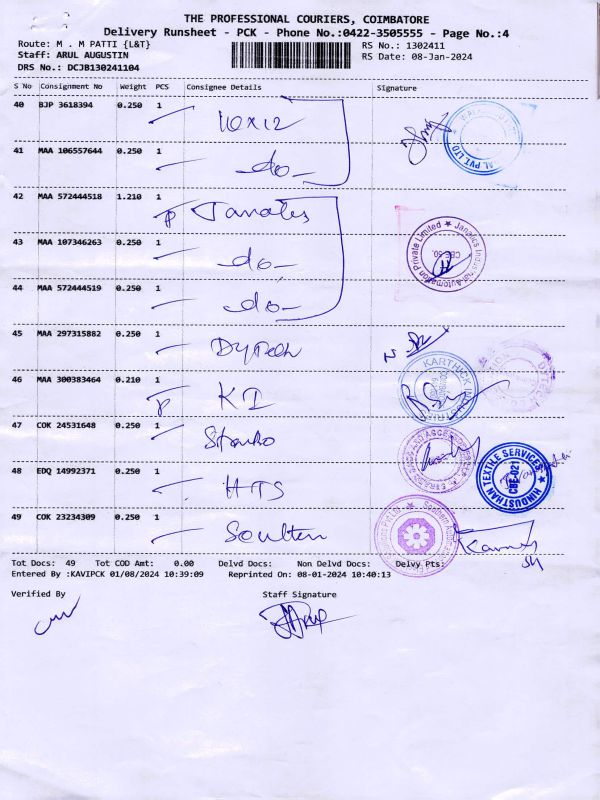 THE PROFESSIONAL COURIERS, COIMBATORE
Delivery Runsheet - PCK - Phone No.:0422-3505555 - Page No.:4
Route: M . M PATTI {L&T} RS No.: 1302411
Staff: ARUL AUGUSTIN RS Date: 08-Jan-2024
DRS No.: DCJB130241104
S No Consignment No Weight PCS Consignee Details Signature
40 BJP 3618394 0.250 1
10x12
41 MAA 106557644 0.250 1
do
42 MAA 572444518 1.210 1
43 MAA 107346263 0.250 1
do
Janatics Industrial Automation Private Limited
44 MAA 572444519 0.250 1
do
45 MAA 297315882 0.250 1
46 MAA 300383464 0.210 1
KI
KARTHICK INDUSTRIES
47 COK 24531648 0.250 1
48 EDQ 14992371 0.250 1
HTS
HINDUSTHAN TEXTILE SERVICES
CBE-021
49 COK 23234309 0.250 1
Tot Docs: 49 Tot COD Amt: 0.00 Delvd Docs: Non Delvd Docs: Delvy Pts:
Entered By :KAVIPCK 01/08/2024 10:39:09 Reprinted On: 08-01-2024 10:40:13
Verified By Staff Signature